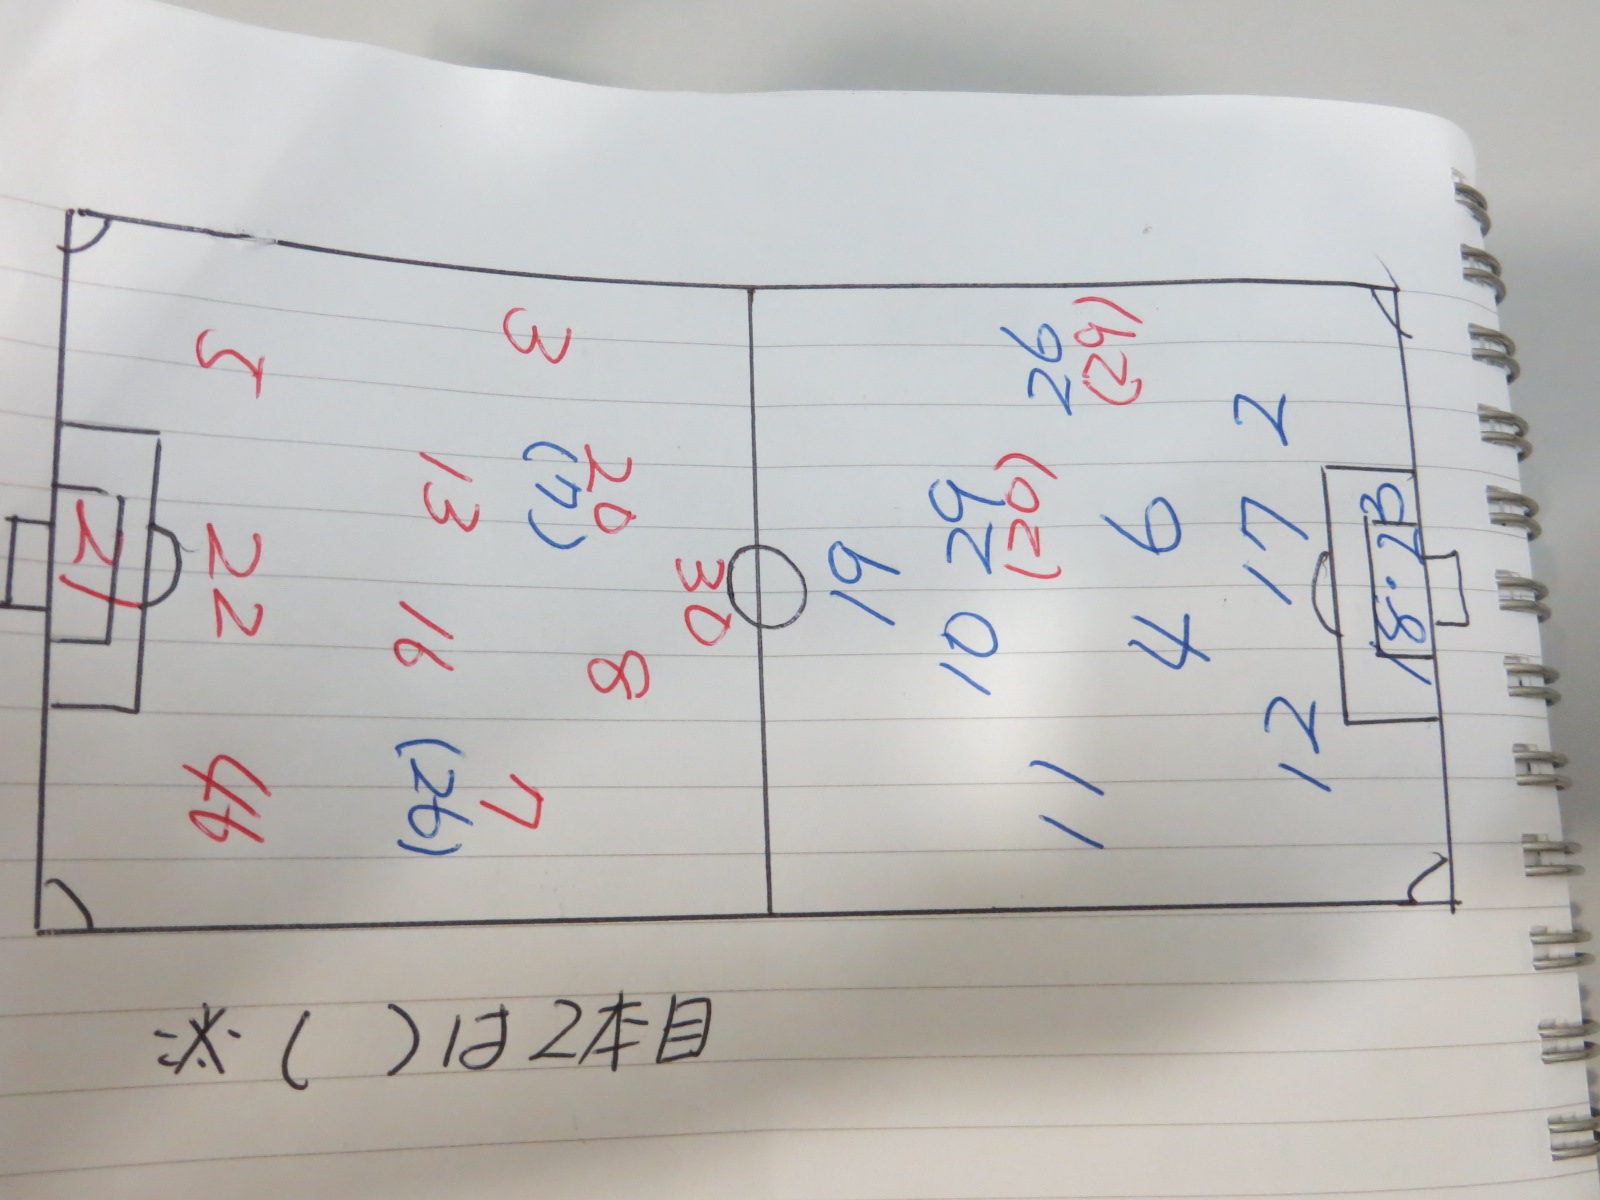 3
5
20
(7)
13
30
22
21
8
16
7
(26)
46
26
(29)
2
29
(20)
6
17
19
18・23
10
4
12
11
※( )は2本目